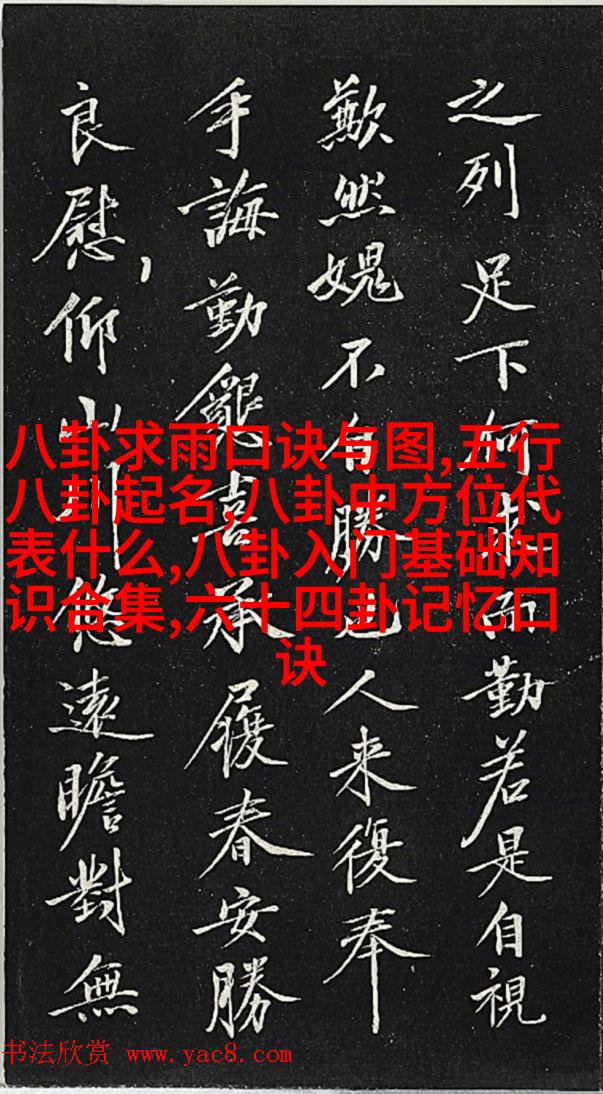 之列足下何求而勤若是自視
歉然媿不自勝也人来復奉
手誨勤懇喜承履春安勝
良慰仰山川悠遠瞻對無
八卦求雨口诀与图,五行
八卦起名,八卦中方位代
表什么,八卦入门基础知
识合集,六十四卦记忆口
诀
书法欣赏 www.yac8.com